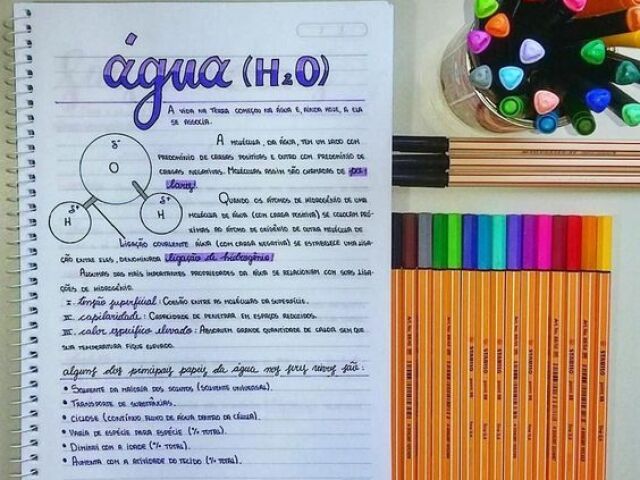 água (H₂O)
A VIDA NA TERRA COMEÇOU NA ÁGUA E, AINDA HOJE, A ELA
SE ASSOCIA.
A MOLÉCULA, DA ÁGUA, TEM UM LADO COM
PREDOMÍNIO DE CARGAS POSITIVAS E OUTRO COM PREDOMÍNIO DE
CARGAS NEGATIVAS. MOLÉCULAS ASSIM SÃO CHAMADAS DE po-
lares!
δ-
O
δ+
H
δ+
H
QUANDO OS ÁTOMOS DE HIDROGÊNIO DE UMA
MOLÉCULA DE ÁGUA (COM CARGA POSITIVA) SE COLOCAM PRÓ-
XIMAS AO ÁTOMO DE OXIGÊNIO DE OUTRA MOLÉCULA DE
LIGAÇÃO COVALENTE ÁGUA (COM CARGA NEGATIVA) SE ESTABELECE UMA LIGA-
ÇÃO ENTRE ELES, DENOMINADA ligação de hidrogênio!
ALGUMAS DAS MAIS IMPORTANTES PROPRIEDADES DA ÁGUA SE RELACIONAM COM SUAS LIGA-
ÇÕES DE HIDROGÊNIO.
I. tensão superficial: COESÃO ENTRE AS MOLÉCULAS DA SUPERFÍCIE.
II. capilaridade: CAPACIDADE DE PENETRAR EM ESPAÇOS REDUZIDOS.
III. calor específico elevado: ABSORVEM GRANDE QUANTIDADE DE CALOR SEM QUE
SUA TEMPERATURA FIQUE ELEVADO.
alguns dos principais papéis da água nos seres vivos são:
• SOLVENTE DA MAIORIA DOS SOLUTOS (SOLVENTE UNIVERSAL).
• TRANSPORTE DE SUBSTÂNCIAS.
• CICLOSE (CONTÍNUO FLUXO DE ÁGUA DENTRO DA CÉLULA).
• VARIA DE ESPÉCIE PARA ESPÉCIE (% TOTAL).
• DIMINUI COM A IDADE (% TOTAL).
• AUMENTA COM A ATIVIDADE DO TECIDO (% TOTAL).
STABILO